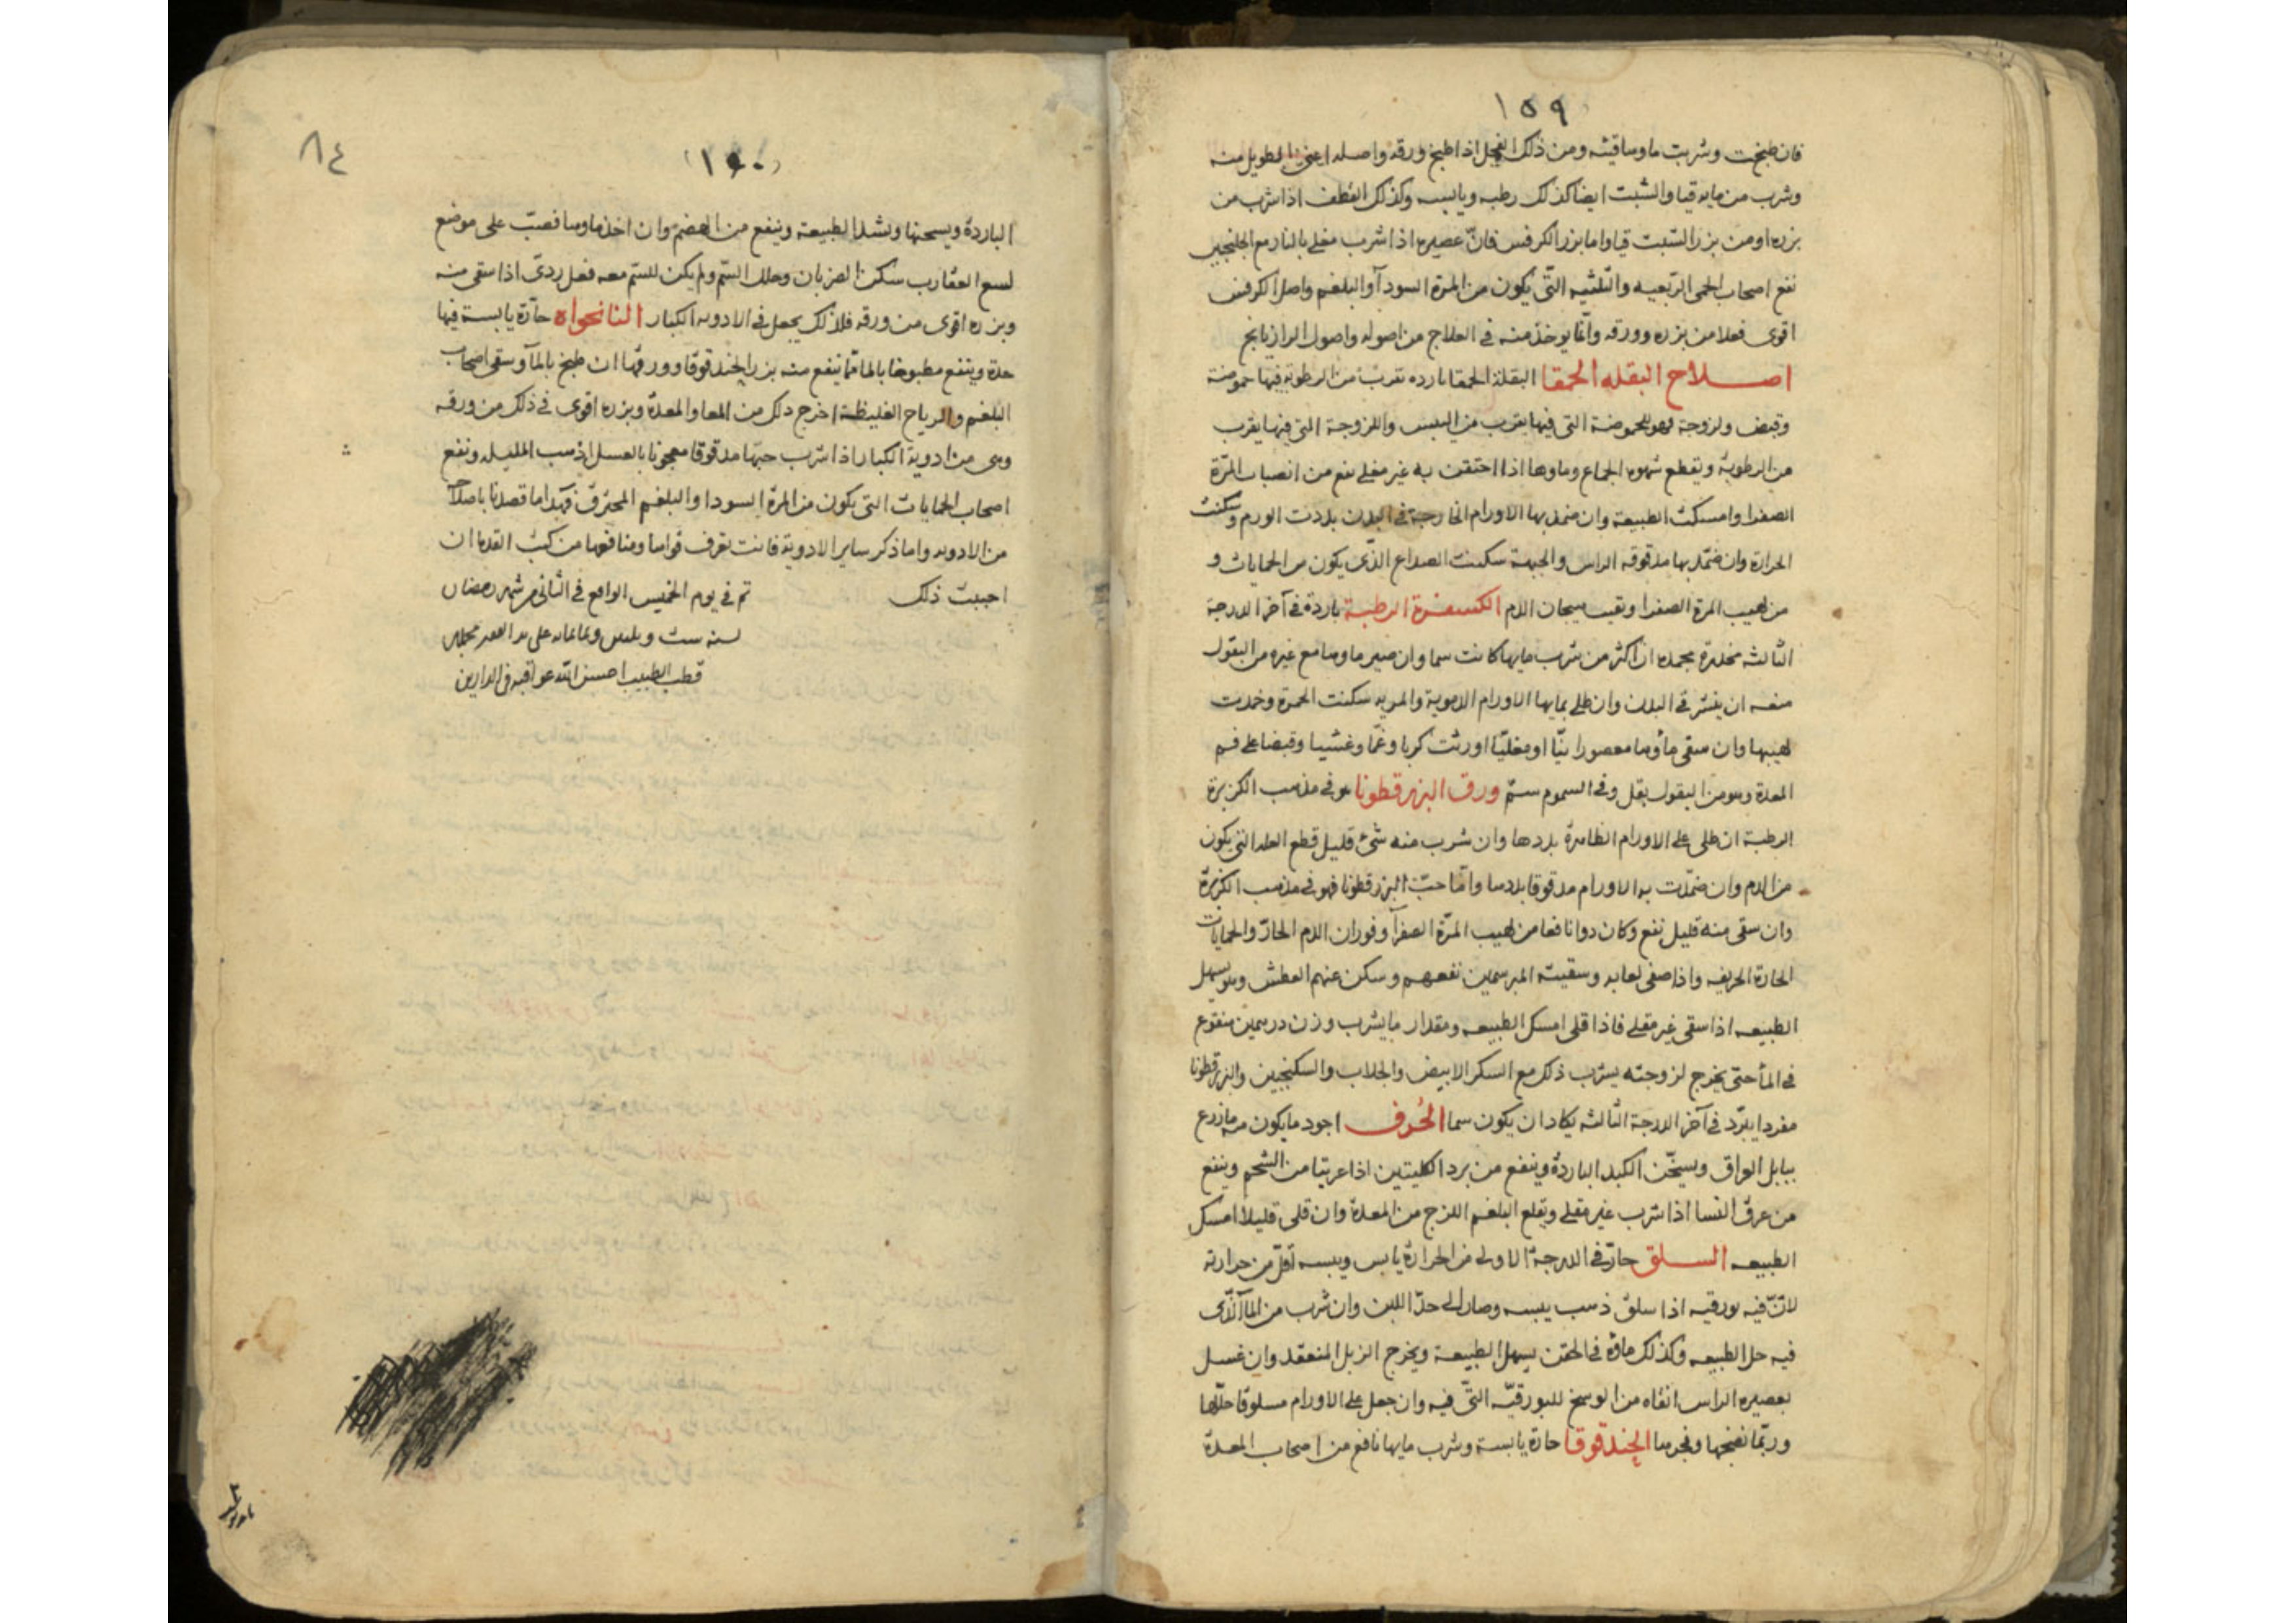 ١٥٩
فان طبخت وشربت ماوها قيئه ومن ذلك الفجل اذا طبخ ورقه واصله اعنى الطويل منه
وشرب من مايه قيا والشبت ايضا كذلك رطبه ويابسه وكذلك القطف اذا شرب من
بزره او من بزر الشبت قيا واما بزر الكرفس فانّ عصيره اذا شرب مغلى بالنار مع الجلنجبين
نفع اصحاب الحمى الرّبعيه والثّلثيه التّى يكون من المرة السودآ والبلغم واصل الكرفس
اقوى فعلا من بزره وورقه وانّما يوخذ منه فى العلاج من اصوله واصول الرازيانج
اصلاح البقله الحمقا البقلة الحمقا بارده تقربّ من الرطوبة فيها حموضة
وقبض ولزوجة وهو للحموضة التى فيها يقرب من اليبس واللزوجة التى فيها يقرب
من الرطوبة ويقطع شهوه الجماع وماوها اذا احتقن به غير مغلى نفع من انصباب المرّة
الصفرا وامسكت الطبيعة وان ضمد بها الاورام الخارجة فى البدن بلدت الورم وسكنت
الحرارة وان ضمّد بها مدقوقه الراس والجبهة سكنت الصداع الذّى يكون من الحمايات و
من لهيب المرة الصفرا وتغيب هيجان الدم الكسفرة الرطبة باردة فى آخر الدرجة
الثالثه مخدرة مجمده ان اكثر من شرب مايها كانت سما وان صير ماوها مع غيره من البقول
منعه ان ينشر فى البدن وان طلى بمايها الاورام الدموية والمريه سكنت الحمرة وخمدت
لهيبها وان سقى ماؤها معصورا نيّا او مغليّا اورثت كربا وغمّا وغشيا وقبضا على فم
المعدة وهو من البقول بقل وفى السموم ستم ورق البزر قطونا هو فى مذهب الكزبرة
الرطبة ان طلى على الاورام الظاهرة بلدها وان شرب منه شئ قليل قطع العلة التى يكون
من الدم وان ضمّدت به الاورام مدقوقا بلدها وامّا حبّ البزر قطونا فهو فى مذهب الكزبرة
وان سقى منه قليل نفع وكان دوا نافعا من لهيب المرّة الصفرآ وفوران الدم الحارّ والحمايات
الحارة الحريفه واذا صفى لعابه وسقيته المبرسمين نفعهم وسكن عنهم العطش وهو يسهل
الطبيعه اذا سقى غير مغلى فاذا قلى امسك الطبيعه ومقدار ما يشرب وزن درهمين منقوع
فى المآ حتى يخرج لزوجته يشرب ذلك مع السكر الابيض والجلاب والسكنجبين والبزر قطونا
مفردا يبرّد فى آخر الدرجة الثالثه يكاد ان يكون سما الحُرف اجود ما يكون منه ما زرع
ببابل العراق ويسخّن الكبد الباردة وينفع من برد الكليتين اذا عريتا من الشحم وينفع
من عرق النسا اذا شرب غير مغلى ويقلع البلغم اللزج من المعدة وان قلى قليلا امسك
الطبيعه السلق حارّ فى الدرجة الاولى من الحرارة يابس ويبسه اقلّ من حرارته
لانّ فيه بورقيه اذا سلق ذهب يبسه وصار الى حدّ اللين وان شرب من المآ الذّى
فيه حل الطبيعه وكذلك ماؤه فى الحقن يسهل الطبيعة ويخرج الزبل المنعقد وان غسل
بعصيره الراس انقاه من الوسخ للبورقيّه التّى فيه وان جعل على الاورام مسلوقا حلّلها
وربّما نضجها وفجرها الحندقوقا حارة يابسة وشرب مايها نافع من اصحاب المعدة
٨٤
(١٦٠)
الباردة ويسخنها ويشد الطبيعة وينفع من الهضم وان اخذ ماوها فصبّ على موضع
لسع العقارب سكن الضربان وحلل السّم ولم يكن للسّم معه فعل ردىّ اذا سقى منه
وبزره اقوى من ورقه فلذلك يجعل فى الادويه الكبار النانخواه حارّة يابسة فيها
حدة وينفع مطبوخا بالما ممّا ينفع منه بزر الحندقوقا وورقها ان طبخ بالمآ وسقى اصحاب
البلغم والرياح الغليظة اخرج ذلك من المعا والمعدة وبزره اقوى فى ذلك من ورقه
وهى من ادوية الكبار اذا شرب حبّها مدقوقا معجونا بالعسل اذهب المليله ونفع
اصحاب الحمايات التى يكون من المرة السودا والبلغم المحترق فهذا ما قصدنا باصلاح
من الادويه واما ذكر ساير الادوية فانت تعرف قواها ومنافعها من كتب القدما ان
احببت ذلك
تم فى يوم الخميس الواقع فى الثانى من شهر رمضان
لسنه ست وثلثين وثمانمايه على يد الفقير
قطب الطبيب احسن الله عواقبه فى الدارين